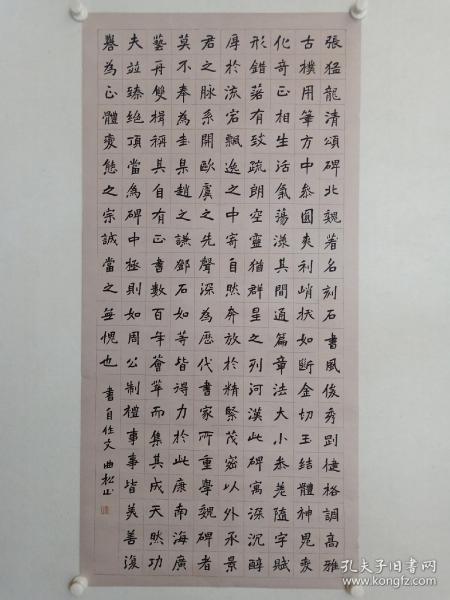 張猛龍清頌碑北魏著名刻石書風俊秀剴健格調高雅
古樸用筆方中參圓爽利峭拔如斷金切玉結體神晃爽
化奇正相生活氣蕩漾其間通篇章法大小參差隨字賦
形錯落有致疏朗空靈猶群星之列河漢此碑寓深沉醇
厚於流宕飄逸之中寄自然奔放於精緊茂密以外承景
君之脉系開歐虞之先聲深為歷代書家所重學魏碑者
莫不奉為圭臬趙之謙鄧石如等皆得力於此康南海廣
藝舟雙楫稱其自有正書數百年薈萃而集其成天然功
夫並臻絶頂當為碑中極則如周公制禮事事皆美善復
譽為正體變態之宗誠當之無愧也 書自作文 曲松山
孔夫子旧书网